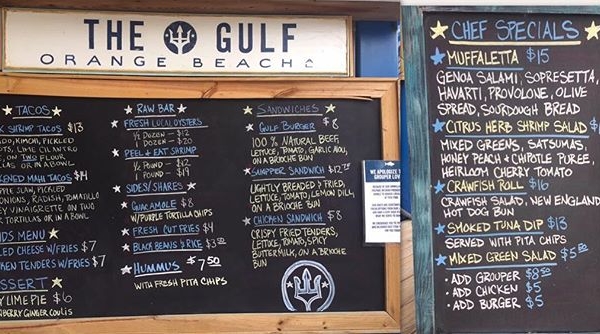 THE GULF
ORANGE BEACH
TACOS
SHRIMP TACOS $13
KIMCHI, PICKLED
CILANTRO
ON TWO FLOUR
OR IN A BOWL
MAHI TACOS $14
SLAW, PICKLED
ONIONS, RADISH, TOMATILLO
VINAIGRETTE ON TWO
TORTILLAS OR IN A BOWL.
KIDS MENU
CHEESE W/FRIES $7
TENDERS W/FRIES $7
DESSERT
LIME PIE $6
GINGER COULIS
RAW BAR
FRESH LOCAL OYSTERS
½ DOZEN - $12
1 DOZEN - $20
PEEL & EAT SHRIMP
½ POUND - $12
1 POUND - $19
SIDES/SHARES
GUACAMOLE $8
W/PURPLE TORTILLA CHIPS
FRESH CUT FRIES $4
BLACK BEANS & RICE $3.50
HUMMUS $7.50
WITH FRESH PITA CHIPS
SANDWICHES
GULF BURGER $8
100% NATURAL BEEF,
LETTUCE, TOMATO, GARLIC AIOLI,
ON A BRIOCHE BUN
SANDWICH
LIGHTLY BREADED & FRIED,
LETTUCE, TOMATO, LEMON DILL,
ON A BRIOCHE BUN
CHICKEN SANDWICH $8
CRISPY FRIED TENDERS,
LETTUCE, TOMATO, SPICY
BUTTERMILK, ON A BRIOCHE
BUN
WE APOLOGIZE
GROUPER
CHEF SPECIALS
MUFFALETTA $15
GENOA SALAMI, SOPRESETTA,
HAVARTI, PROVOLONE, OLIVE
SPREAD, SOURDOUGH BREAD
CITRUS HERB SHRIMP SALAD
MIXED GREENS, SATSUMAS,
HONEY PEACH & CHIPOTLE PUREE,
HEIRLOOM CHERRY TOMATO
CRAWFISH ROLL $16
CRAWFISH SALAD, NEW ENGLAND
HOT DOG BUN
SMOKED TUNA DIP $13
SERVED WITH PITA CHIPS
MIXED GREEN SALAD $5.50
• ADD GROUPER $8.50
• ADD CHICKEN $5
• ADD BURGER $5